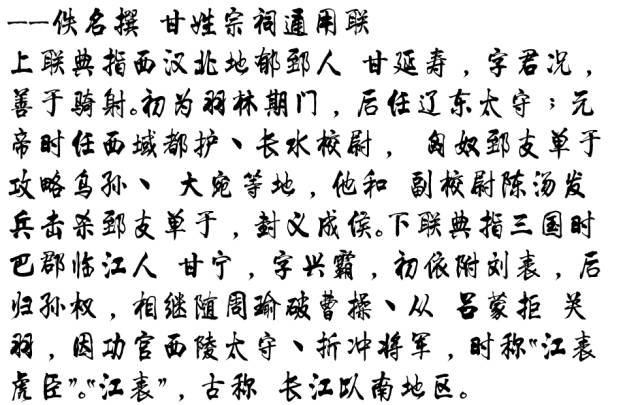 ——佚名撰 甘姓宗祠通用联
上联典指西汉北地郁郅人 甘延寿，字君况，
善于骑射。初为羽林期门，后任辽东太守；元
帝时任西域都护、长水校尉， 匈奴郅支单于
攻略乌孙、 大宛等地，他和 副校尉陈汤发
兵击杀郅支单于，封义成侯。下联典指三国时
巴郡临江人 甘宁，字兴霸，初依附刘表，后
归孙权，相继随周瑜破曹操、从 吕蒙拒 关
羽，因功官西陵太守、折冲将军，时称“江表
虎臣”。“江表”，古称 长江以南地区。